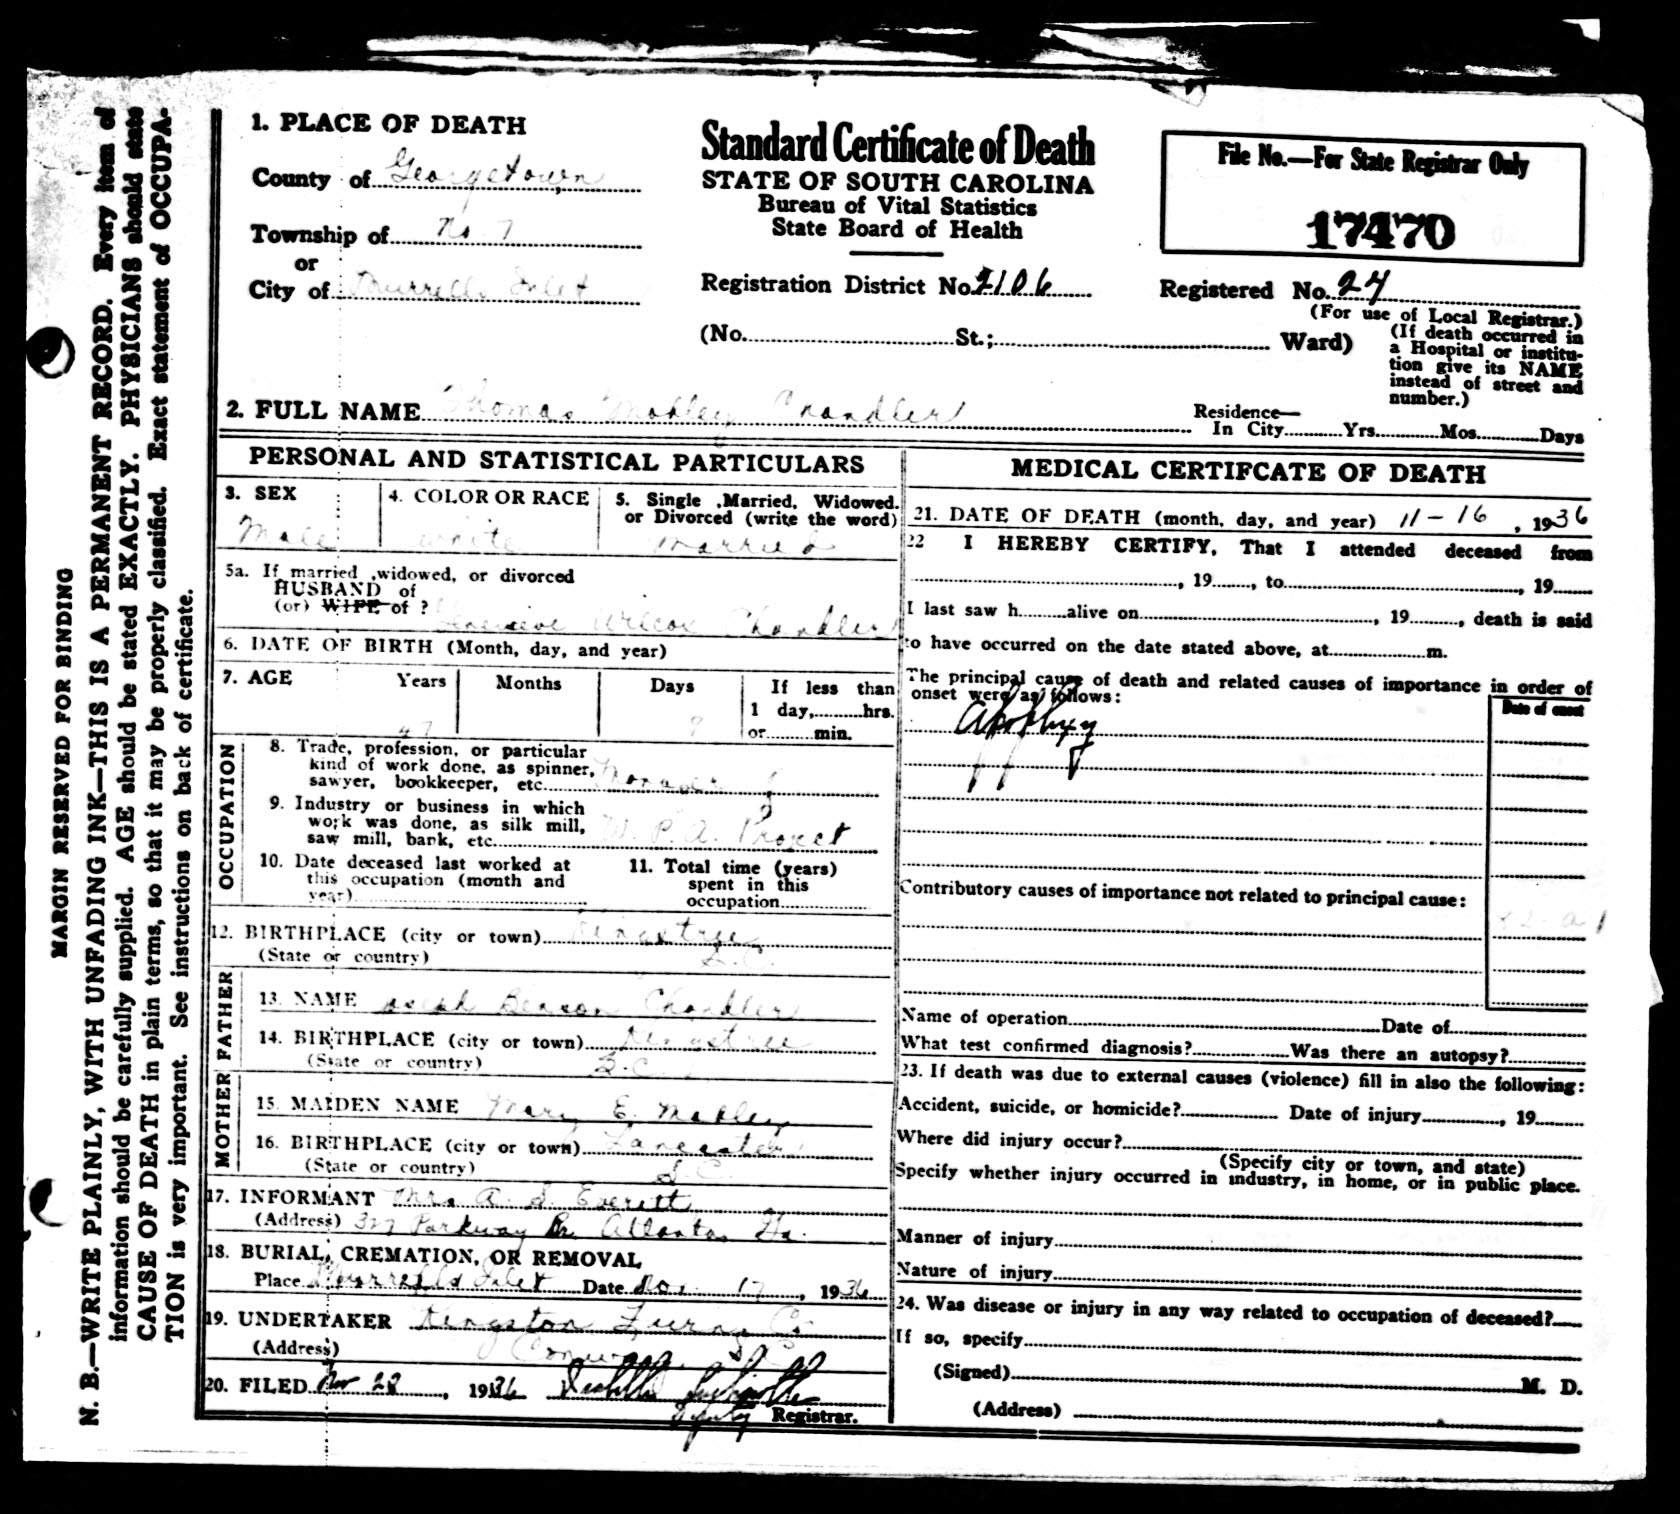 MARGIN RESERVED FOR BINDING
N. B.—WRITE PLAINLY, WITH UNFADING INK—THIS IS A PERMANENT RECORD. Every item of
information should be carefully supplied. AGE should be stated EXACTLY. PHYSICIANS should state
CAUSE OF DEATH in plain terms, so that it may be properly classified. Exact statement of OCCUPA-
TION is very important. See instructions on back of certificate.
1. PLACE OF DEATH
County of Georgetown
Township of No. 7
or
City of Murrells Inlet
Standard Certificate of Death
STATE OF SOUTH CAROLINA
Bureau of Vital Statistics
State Board of Health
File No.—For State Registrar Only
17470
Registration District No. 2106
Registered No. 24
(For use of Local Registrar.)
(No. St.; Ward)
(If death occurred in
a Hospital or institu-
tion give its NAME
instead of street and
number.)
2. FULL NAME Thomas Mobley Chandler
Residence—
In City Yrs. Mos. Days
PERSONAL AND STATISTICAL PARTICULARS
3. SEX
Male
4. COLOR OR RACE
White
5. Single ,Married, Widowed.
or Divorced (write the word)
Married
5a. If married ,widowed, or divorced
HUSBAND of
(or) WIFE of ?
Genevieve Wilcox Chandler
6. DATE OF BIRTH (Month, day, and year)
7. AGE Years Months Days If less than
1 day, hrs.
47 9 or min.
OCCUPATION
8. Trade, profession, or particular
kind of work done, as spinner,
sawyer, bookkeeper, etc. Manager of
9. Industry or business in which
work was done, as silk mill,
saw mill, bank, etc. W. P. A. Project
10. Date deceased last worked at
this occupation (month and
year)
11. Total time (years)
spent in this
occupation
12. BIRTHPLACE (city or town) Kingstree
(State or country) S.C.
FATHER
13. NAME Joseph Benson Chandler
14. BIRTHPLACE (city or town) Kingstree
(State or country) S.C.
MOTHER
15. MAIDEN NAME Mary E. Mobley
16. BIRTHPLACE (city or town) Lancaster
(State or country) S.C.
17. INFORMANT Mrs. A. S. Everett
(Address) 327 Parkway Dr. Atlanta, Ga.
18. BURIAL, CREMATION, OR REMOVAL
Place Murrells Inlet Date Nov. 17, 1936
19. UNDERTAKER Kingston Furn. Co
(Address) Conway, S.C.
20. FILED Nov 23, 1936
Deputy Registrar.
MEDICAL CERTIFCATE OF DEATH
21. DATE OF DEATH (month, day, and year) 11-16, 1936
22 I HEREBY CERTIFY, That I attended deceased from
, 19 , to , 19
I last saw h alive on , 19 , death is said
to have occurred on the date stated above, at m.
The principal cause of death and related causes of importance in order of
onset were as follows:
Date of onset
Apoplexy
Contributory causes of importance not related to principal cause:
Name of operation Date of
What test confirmed diagnosis? Was there an autopsy?
23. If death was due to external causes (violence) fill in also the following:
Accident, suicide, or homicide? Date of injury , 19
Where did injury occur?
(Specify city or town, and state)
Specify whether injury occurred in industry, in home, or in public place.
Manner of injury
Nature of injury
24. Was disease or injury in any way related to occupation of deceased?
If so, specify
(Signed) M. D.
(Address)